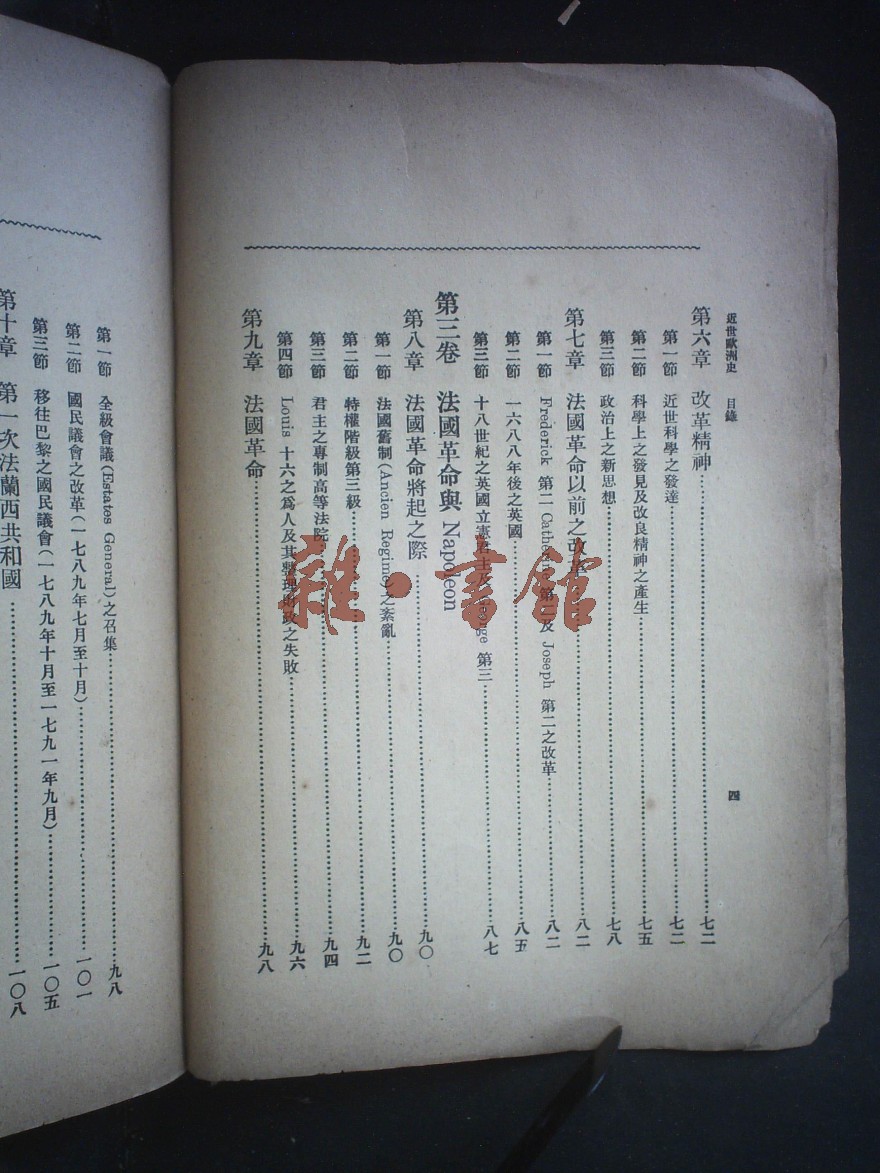 近世歐洲史 目錄 四
第六章 改革精神……七二
第一節 近世科學之發達……七二
第二節 科學上之發見及改良精神之產生……七五
第三節 政治上之新思想……七八
第七章 法國革命以前之改革……八二
第一節 Frederick 第二 Catherine 第二及 Joseph 第二之改革……八二
第二節 一六八八年後之英國……八五
第三節 十八世紀之英國立憲君主及 George 第三……八七
第三卷 法國革命與 Napoleon
第八章 法國革命將起之際……九〇
第一節 法國舊制(Ancien Regime)之紊亂……九〇
第二節 特權階級第三級……九二
第三節 君主之專制高等法院……九四
第四節 Louis 十六之爲人及其整理財政之失敗……九六
第九章 法國革命……九八
第一節 全級會議(Estates General)之召集……九八
第二節 國民議會之改革(一七八九年七月至十月)……一〇一
第三節 移往巴黎之國民議會(一七八九年十月至一七九一年九月)……一〇五
第十章 第一次法蘭西共和國……一〇八
雜·書館